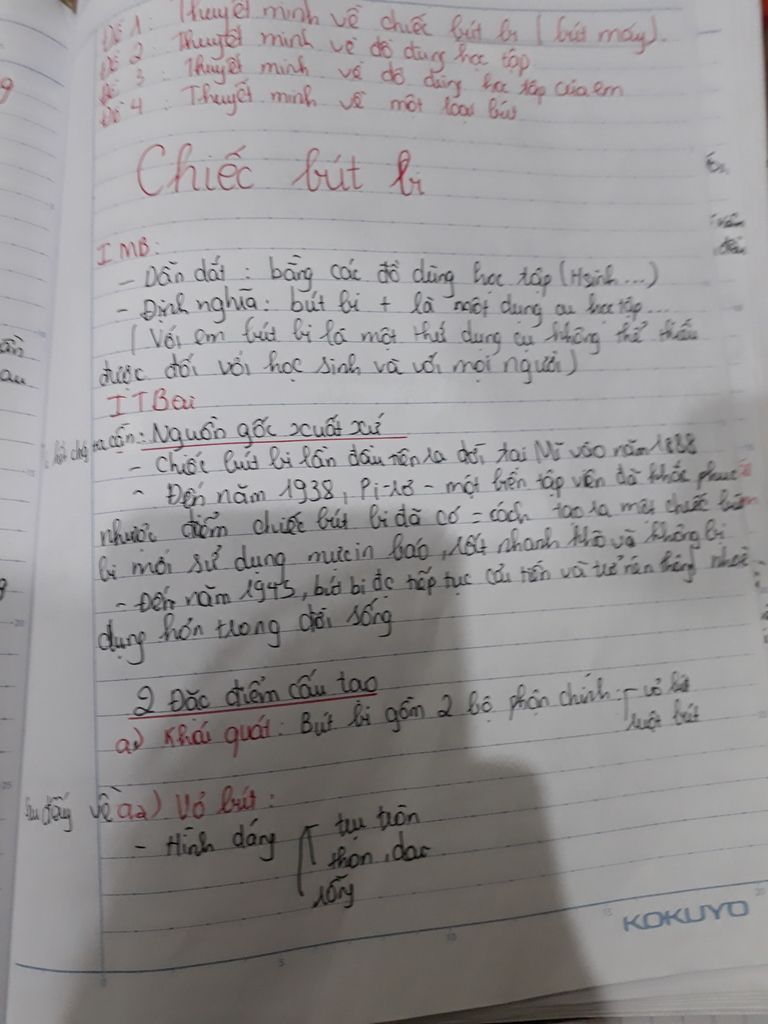 Đề 1: Thuyết minh về chiếc bút bi (bút máy).
Đề 2: Thuyết minh về đồ dùng học tập
Đề 3: Thuyết minh về đồ dùng học tập của em
Đề 4: Thuyết minh về một loại bút
Chiếc bút bi
I MB:
- Dẫn dắt: bằng các đồ dùng học tập (Hsinh...)
- Định nghĩa: bút bi + là một dụng cụ học tập...
(Với em bút bi là một thứ dụng cụ không thể thiếu
được đối với học sinh và với mọi người)
II TBai
Nguồn gốc xuất xứ
- Chiếc bút bi lần đầu tiên ra đời tại Mĩ vào năm 1888
- Đến năm 1938, Pi-rơ - một biên tập viên đã khắc phục
nhược điểm chiếc bút bi đã có = cách tạo ra một chiếc bút
bi mới sử dụng mực in báo, rất nhanh khô và không bị
- Đến năm 1945, bút bi đc tiếp tục cải tiến và trở nên thông
dụng hơn trong đời sống
2 Đặc điểm cấu tạo
a) Khái quát: Bút bi gồm 2 bộ phận chính: vỏ bút
ruột bút
a2) Vỏ bút:
- Hình dáng trụ tròn
thon, dài
rỗng
KOKUYO